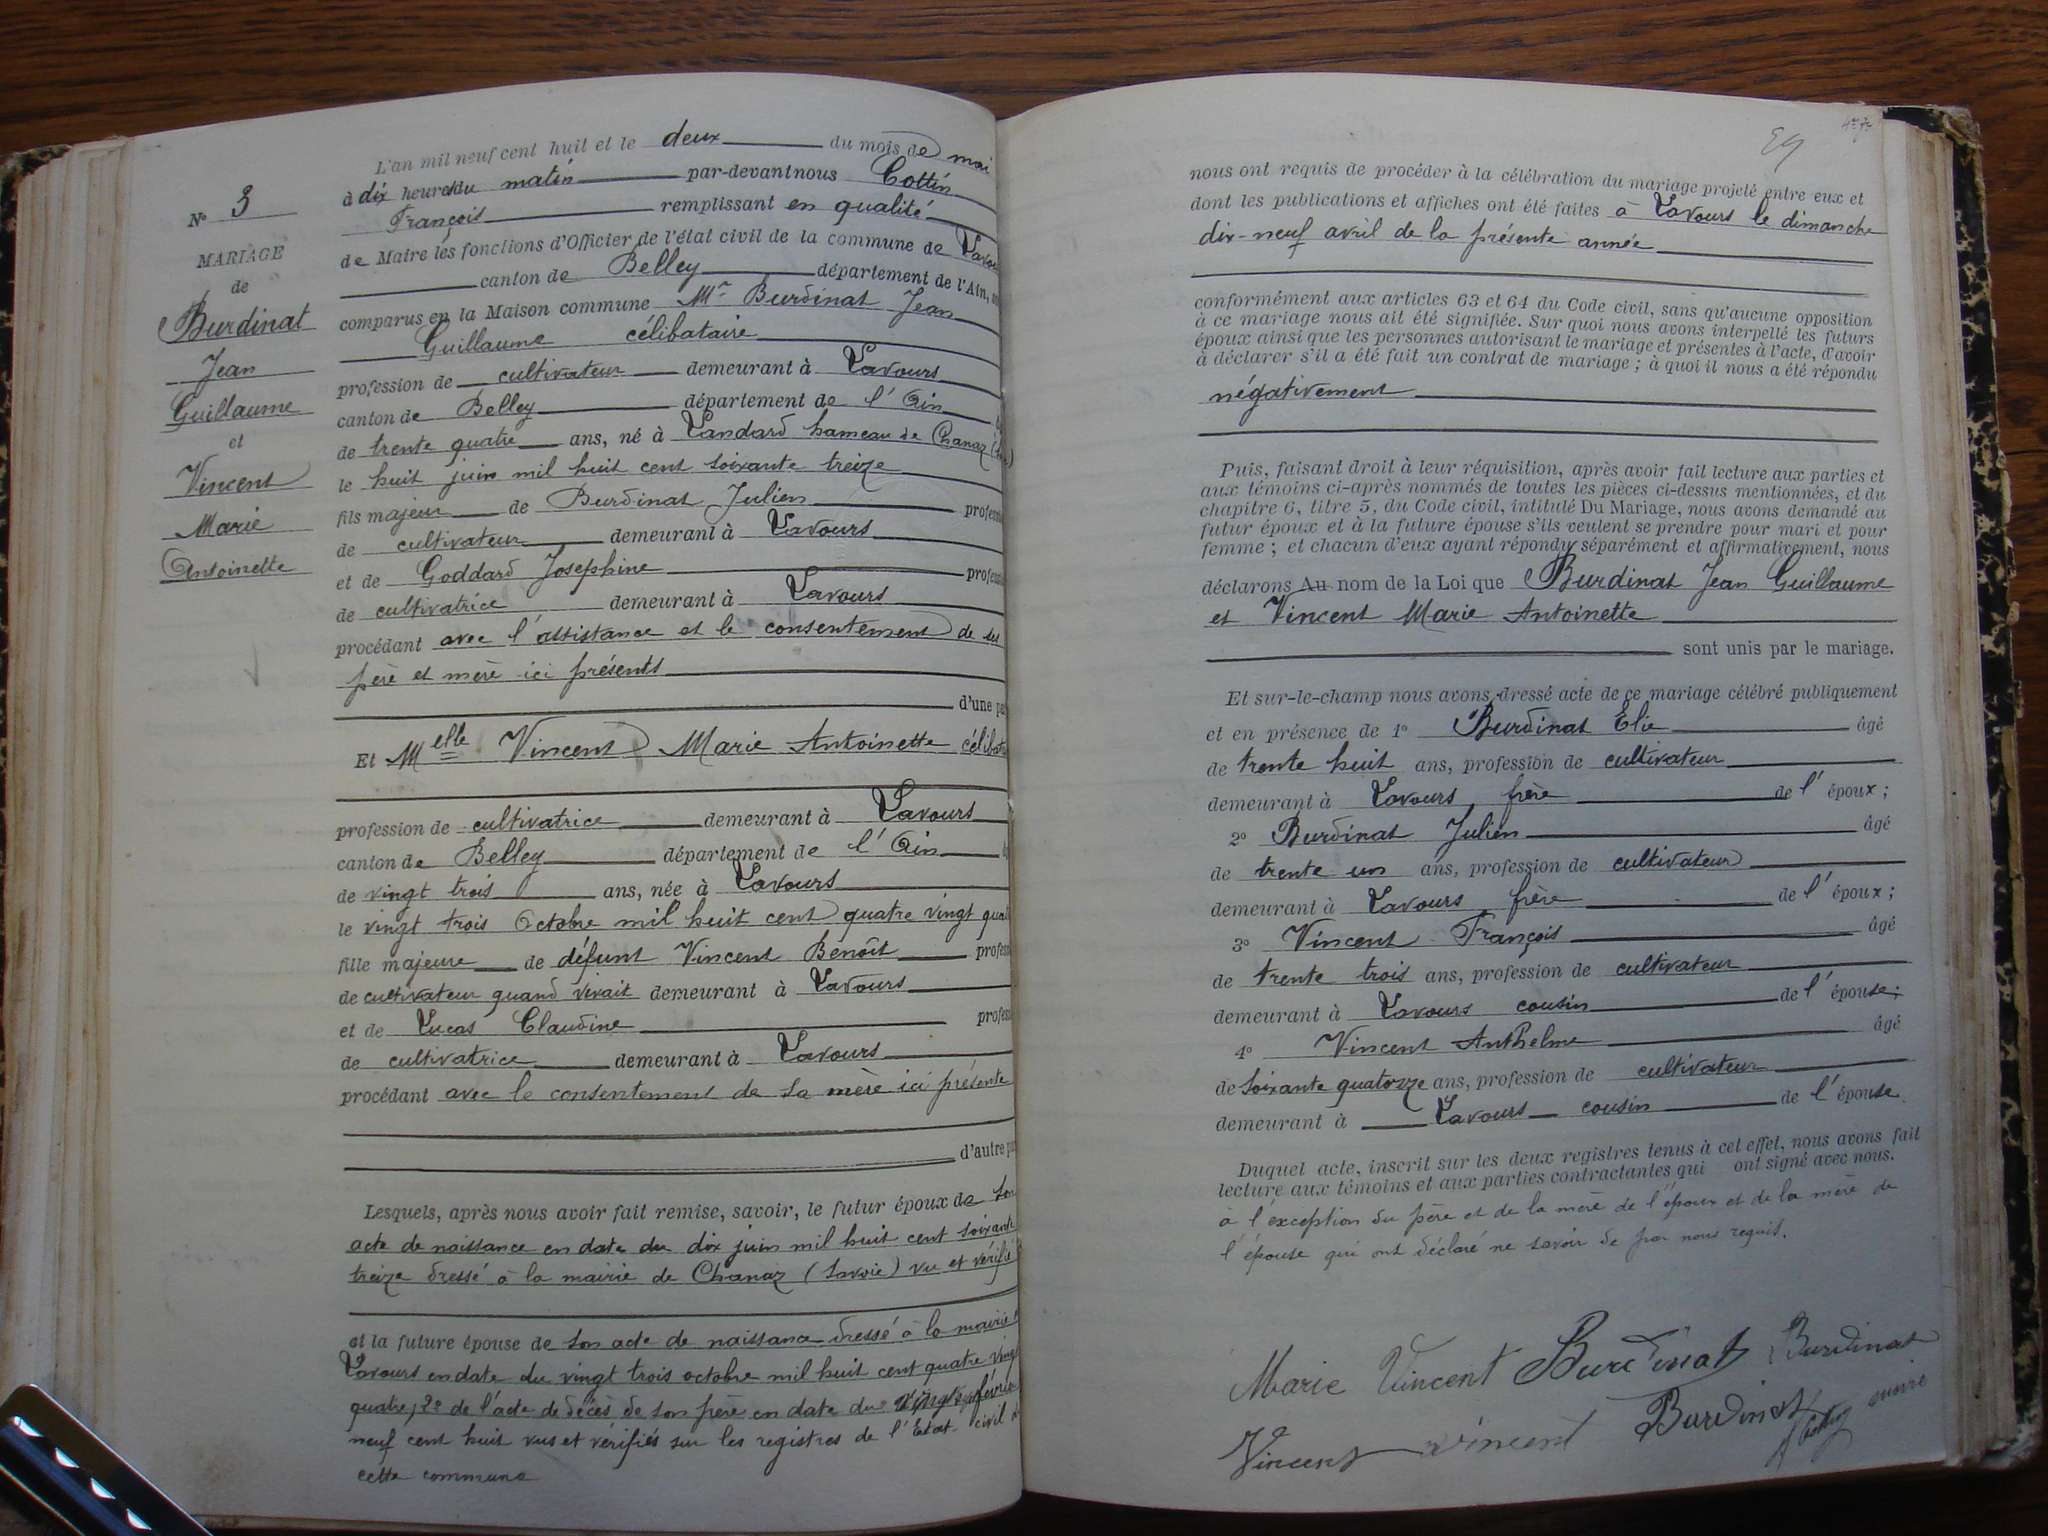 L'an mil neuf cent huit et le deux du mois de mai
à dix heures du matin par-devant nous Cottin
François remplissant en qualité
de Maire les fonctions d'Officier de l'état civil de la commune de Lavou
canton de Belley département de l'Ain,
comparus en la Maison commune Mr Burdinat Jean
Guillaume célibataire
profession de cultivateur demeurant à Lavours
canton de Belley département de l'Ain
de trente quatre ans, né à Landard hameau de Chanaz
le huit juin mil huit cent soixante treize
fils majeur de Burdinat Julien profess
de cultivateur demeurant à Lavours
et de Goddard Josephine profess
de cultivatrice demeurant à Lavours
procédant avec l'assistance et le consentement de ses
père et mère ici présents
d'une pa
N° 3
MARIAGE
de
Burdinat
Jean
Guillaume
et
Vincent
Marie
Antoinette
Et Melle Vincent Marie Antoinette céliba
profession de cultivatrice demeurant à Lavours
canton de Belley département de l'Ain
de vingt trois ans, née à Lavours
le vingt trois Octobre mil huit cent quatre vingt qua
fille majeure de défunt Vincent Benoît profess
de cultivateur quand vivait demeurant à Lavours
et de Lucas Claudine profess
de cultivatrice demeurant à Lavours
procédant avec le consentement de sa mère ici présente
d'autre pa
Lesquels, après nous avoir fait remise, savoir, le futur époux de son
acte de naissance en date du dix juin mil huit cent soixante
treize dressé à la mairie de Chanaz (Savoie) vu et vérifié
et la future épouse de son acte de naissance dressé à la mairie
Lavours en date du vingt trois octobre mil huit cent quatre ving
quatre, 2° de l'acte de décès de son père en date du février
neuf cent huit vus et vérifiés sur les registres de l'Etat civil
cette commune
59
nous ont requis de procéder à la célébration du mariage projeté entre eux et
dont les publications et affiches ont été faites à Lavours le dimanche
dix-neuf avril de la présente année
conformément aux articles 63 et 64 du Code civil, sans qu'aucune opposition
à ce mariage nous ait été signifiée. Sur quoi nous avons interpellé les futurs
époux ainsi que les personnes autorisant le mariage et présentes à l'acte, d'avoir
à déclarer s'il a été fait un contrat de mariage ; à quoi il nous a été répondu
négativement
Puis, faisant droit à leur réquisition, après avoir fait lecture aux parties et
aux témoins ci-après nommés de toutes les pièces ci-dessus mentionnées, et du
chapitre 6, titre 5, du Code civil, intitulé Du Mariage, nous avons demandé au
futur époux et à la future épouse s'ils veulent se prendre pour mari et pour
femme ; et chacun d'eux ayant répondu séparément et affirmativement, nous
déclarons Au nom de la Loi que Burdinat Jean Guillaume
et Vincent Marie Antoinette
sont unis par le mariage.
Et sur-le-champ nous avons dressé acte de ce mariage célébré publiquement
et en présence de 1° Burdinat Elie âgé
de trente huit ans, profession de cultivateur
demeurant à Lavours, frère de l'époux ;
2° Burdinat Julien âgé
de trente un ans, profession de cultivateur
demeurant à Lavours frère de l'époux ;
3° Vincent François âgé
de trente trois ans, profession de cultivateur
demeurant à Lavours cousin de l'épouse ;
4° Vincent Anthelme âgé
de soixante quatorze ans, profession de cultivateur
demeurant à Lavours cousin de l'épouse
Duquel acte, inscrit sur les deux registres tenus à cet effet, nous avons fait
lecture aux témoins et aux parties contractantes qui ont signé avec nous.
à l'exception du père et de la mère de l'époux et de la mère de
l'épouse qui ont déclaré ne savoir de par nous requis.
Marie Vincent Burdinat Burdinat
Vincent vincent Burdinat maire